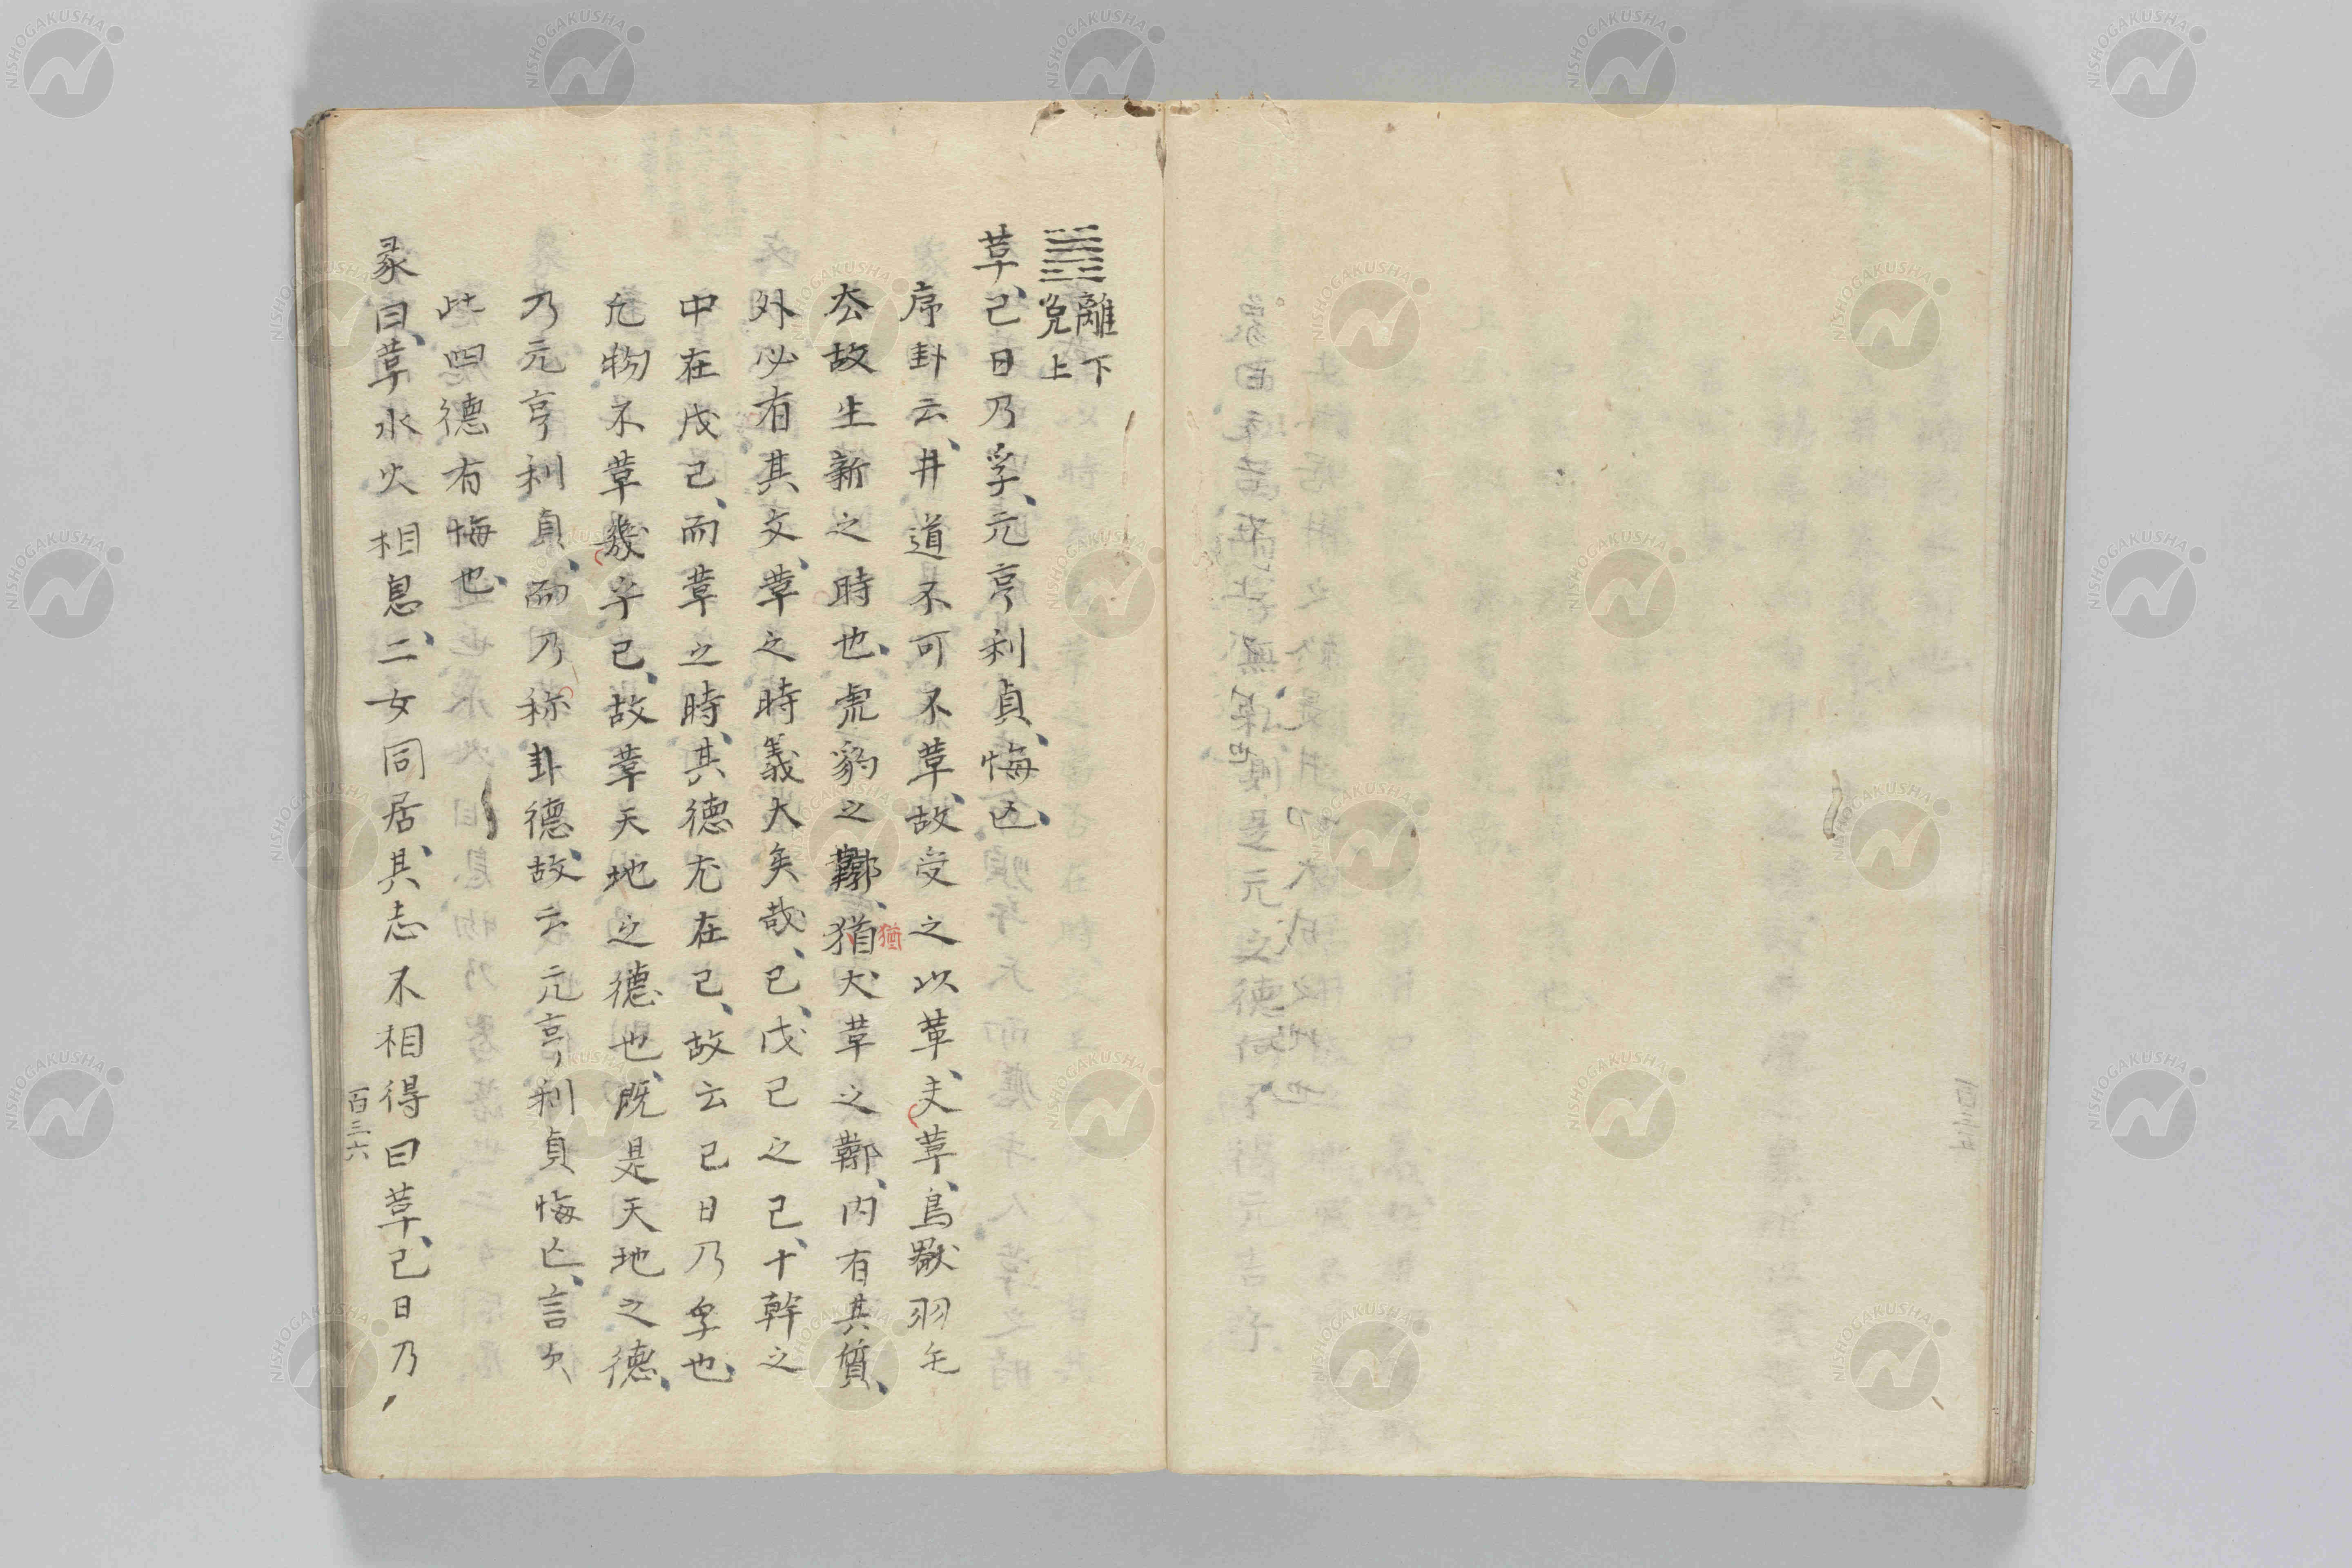 ䷰離下
兌上
革、己日乃孚、元亨利貞、悔亡、
序卦云、井道不可不革、故受之以革、夫革、鳥獸羽毛
去故生新之時也、虎豹之鞹、猶犬革之鞹、內有其質、
猶
外必有其文、革之時義大矣哉、己、戊己之己、十幹之
中在戊己、而革之時、其德尤在己、故云己日乃孚也、
凡物不革幾乎已、故革天地之德也、既是天地之德、
乃元亨利貞、而乃称卦德、故云元亨利貞悔亡、言欠
此四德有悔也、
彖曰、革水火相息、二女同居、其志不相得曰革、己日乃
百三六
NISHOGAKUSHA